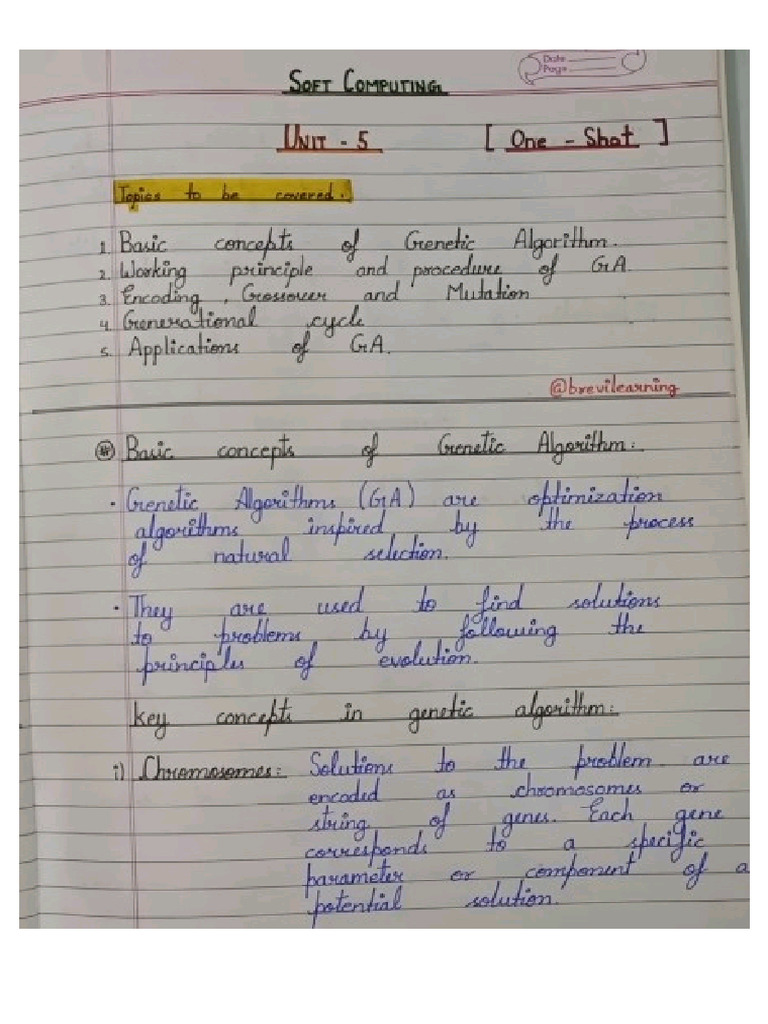 Date
Page
SOFT COMPUTING
UNIT - 5 [ One - Shot ]
Topics to be covered.
1. Basic concepts of Genetic Algorithm.
2. Working principle and procedure of GA
3. Encoding, Crossover and Mutation
4. Generational cycle
5. Applications of GA.
@brevilearning
# Basic concepts of Genetic Algorithm:
• Genetic Algorithms (GA) are optimization
algorithms inspired by the process
of natural selection.
• They are used to find solutions
to problems by following the
principles of evolution.
key concepts in genetic algorithm:
i) Chromosomes: Solutions to the problem are
encoded as chromosomes or
string of genes. Each gene
corresponds to a specific
parameter or component of a
potential solution.